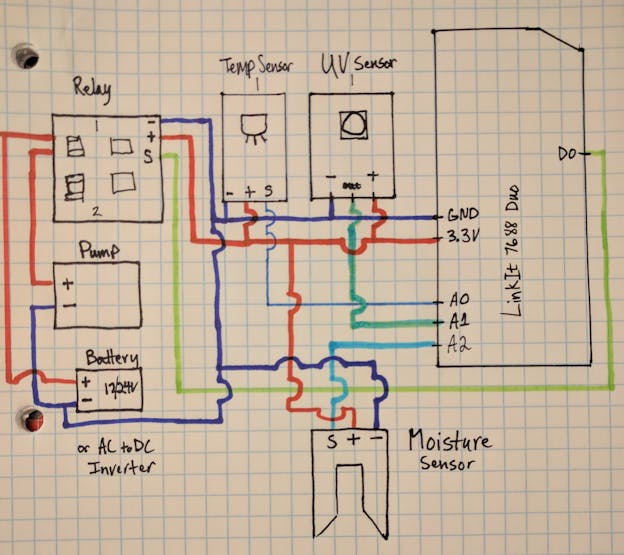 Temp Sensor
UV Sensor
Relay
1
-
+
S
2
- + S
- out +
D0
GND
3.3V
LinkIt 7688 Duo
Pump
+
-
A0
A1
A2
Battery
+
-
12/24V
or AC to DC
Inverter
S + -
Moisture
Sensor